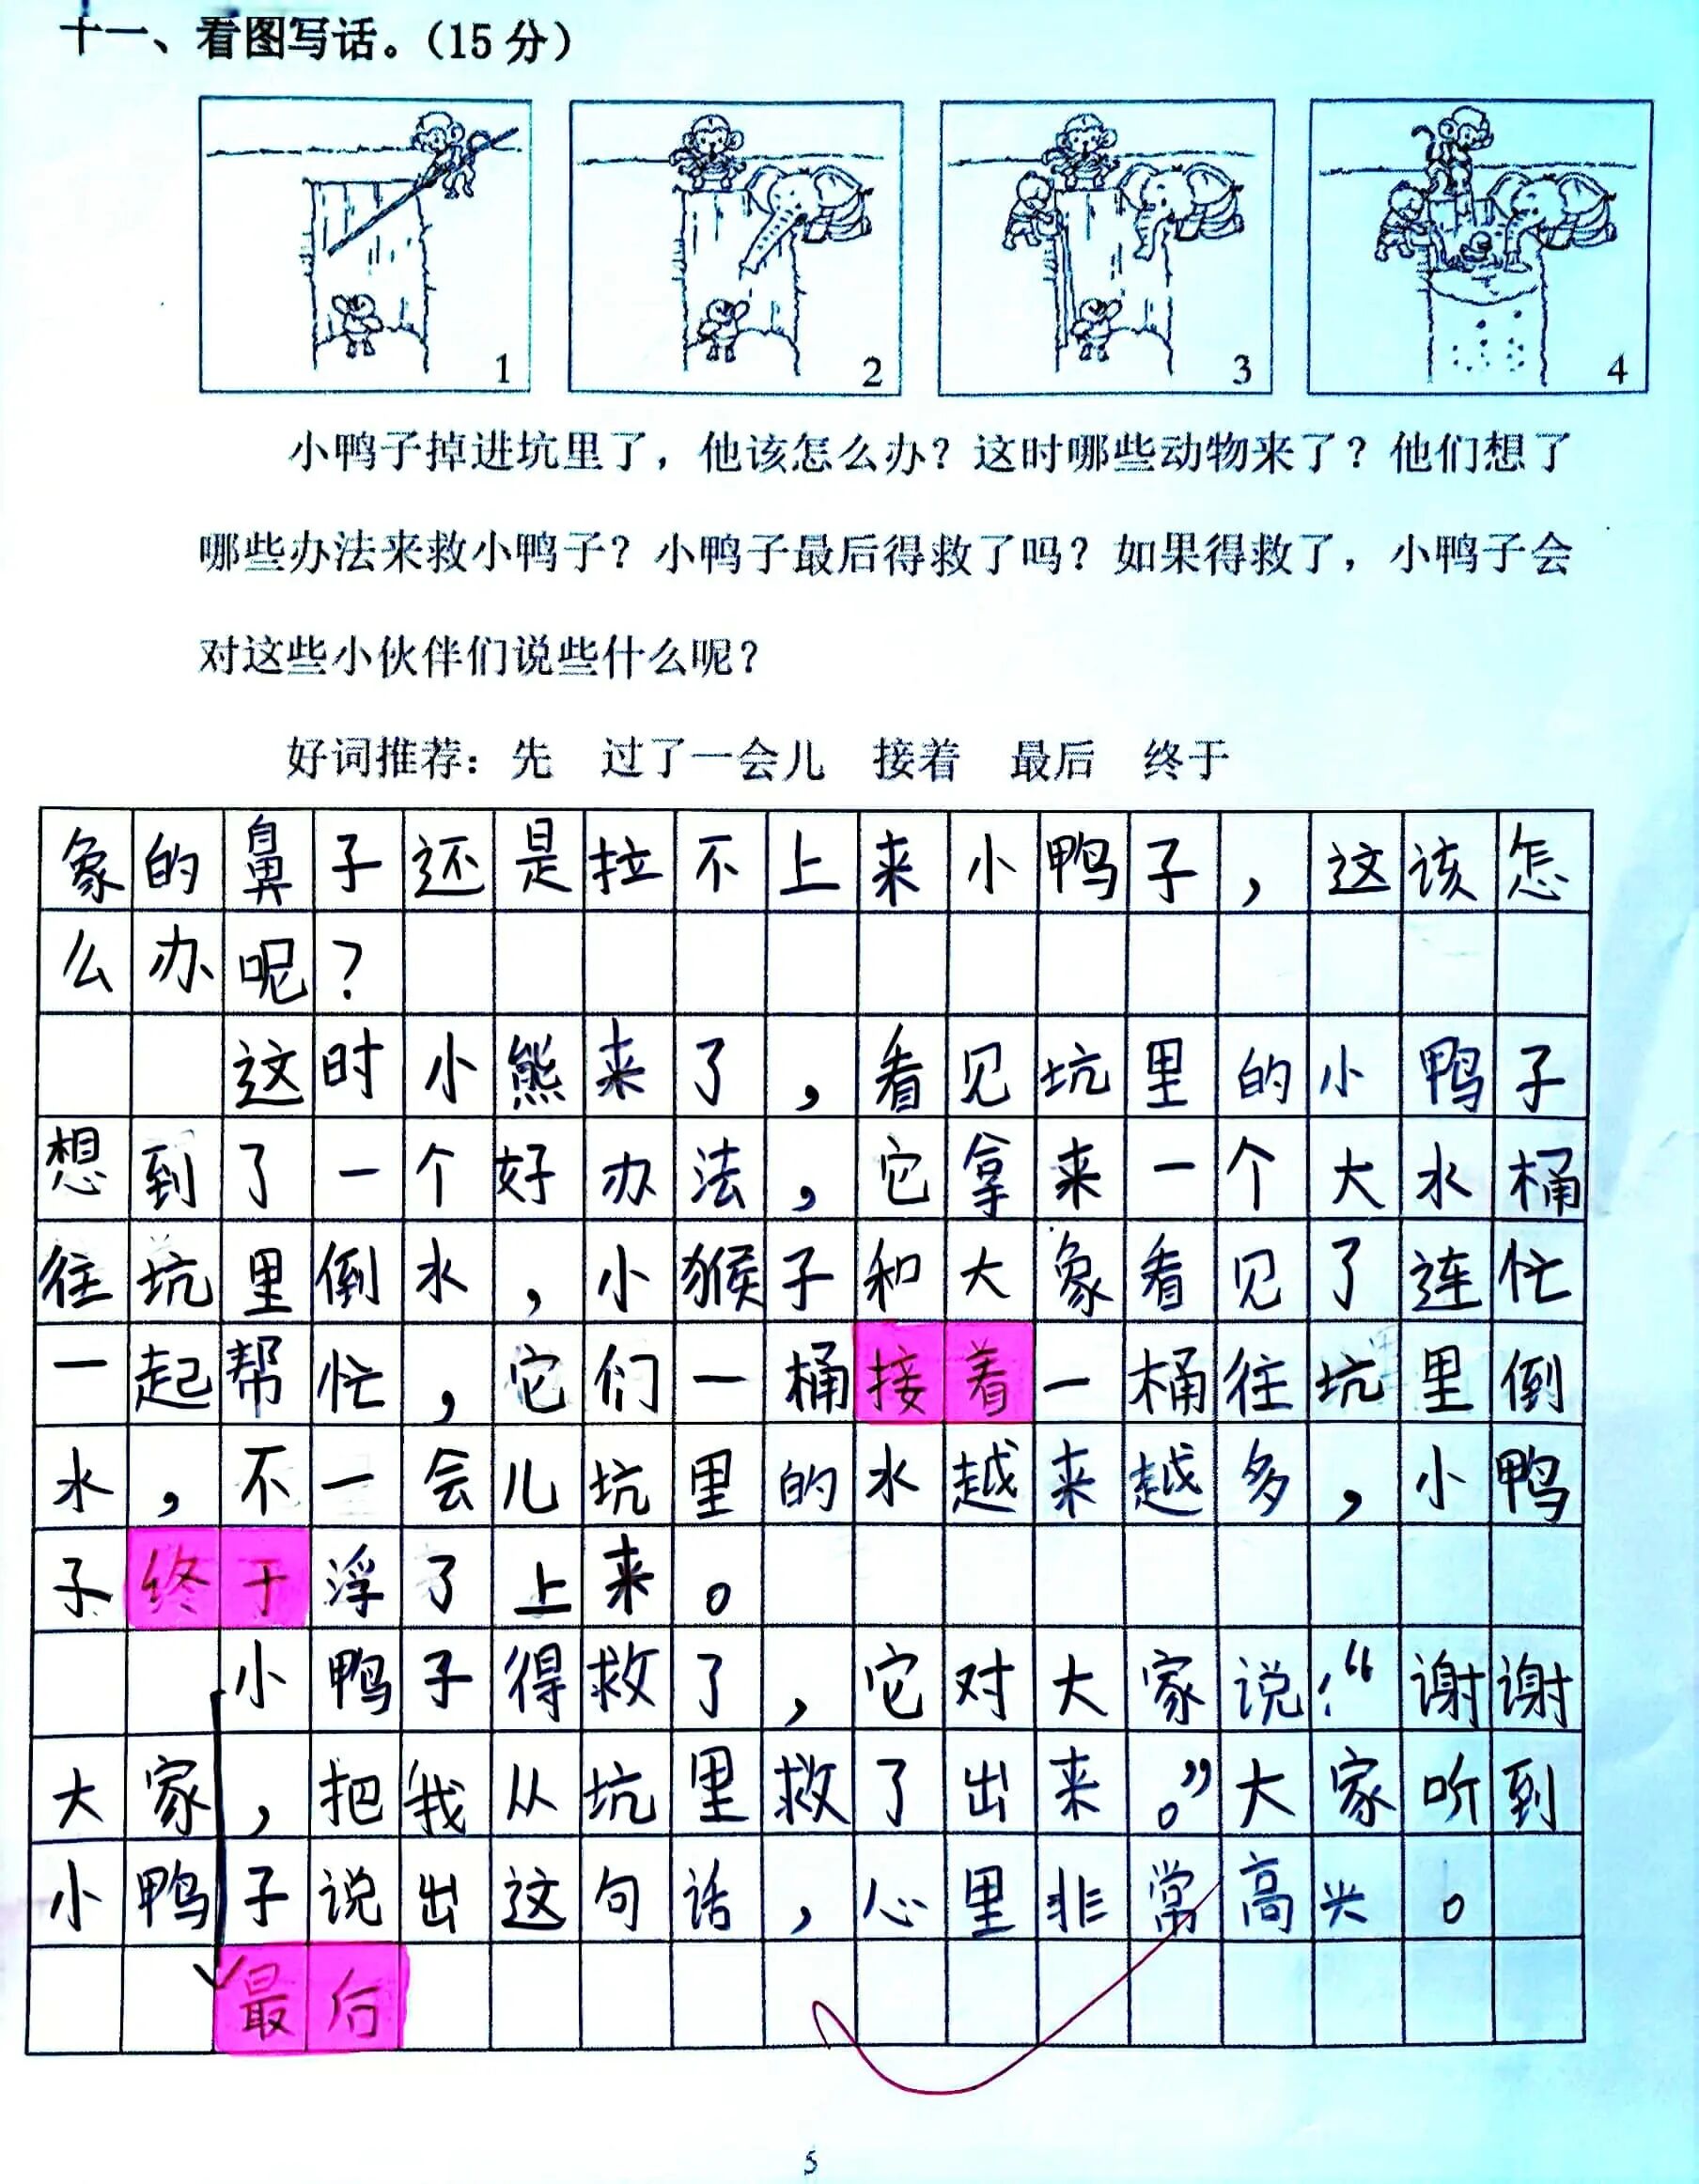 十一、看图写话。（15 分）
1
2
3
4
小鸭子掉进坑里了，他该怎么办？这时哪些动物来了？他们想了
哪些办法来救小鸭子？小鸭子最后得救了吗？如果得救了，小鸭子会
对这些小伙伴们说些什么呢？
好词推荐：先 过了一会儿 接着 最后 终于
象的鼻子还是拉不上来小鸭子，这该怎
么办呢？
这时小熊来了，看见坑里的小鸭子
想到了一个好办法，它拿来一个大水桶
往坑里倒水，小猴子和大象看见了连忙
一起帮忙，它们一桶接着一桶往坑里倒
水，不一会儿坑里的水越来越多，小鸭
子终于浮了上来。
小鸭子得救了，它对大家说：“谢谢
大家，把我从坑里救了出来。”大家听到
小鸭子说出这句话，心里非常高兴。
最后
5